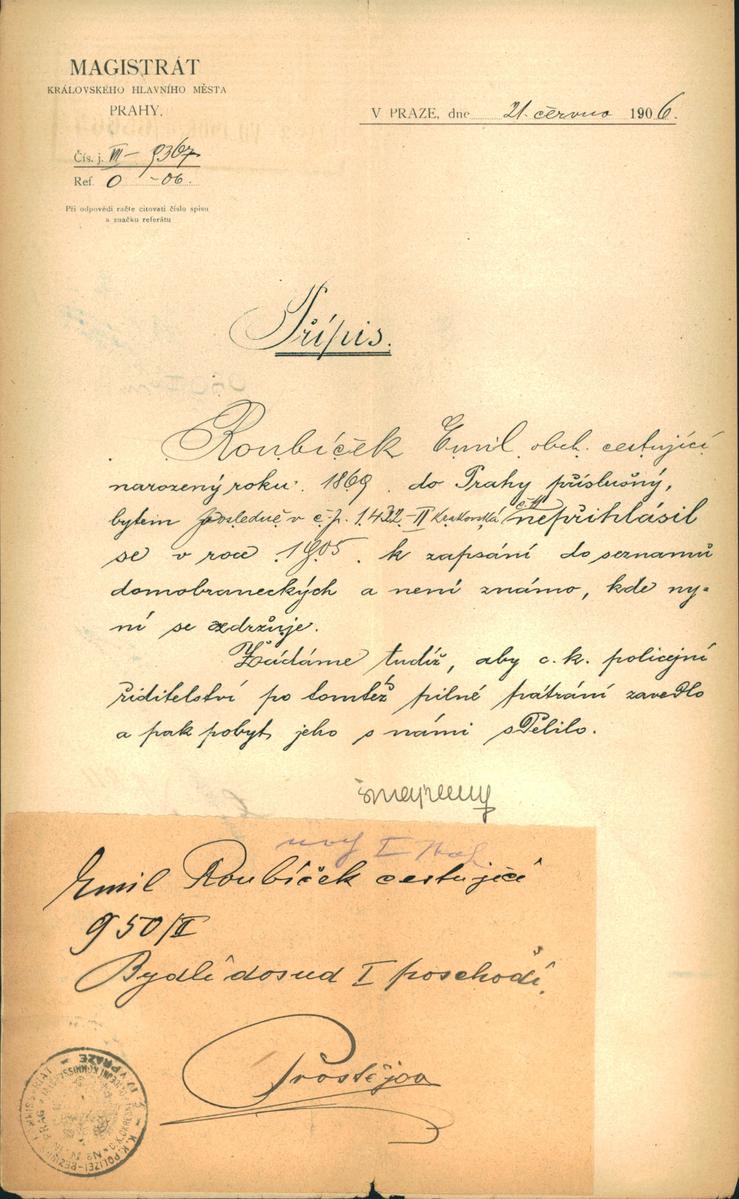 MAGISTRÁT
KRÁLOVSKÉHO HLAVNÍHO MĚSTA
PRAHY.
V PRAZE, dne 21. června 1906.
Čís. j. VII— 9367
Ref. O —06.
Při odpovědi račte citovati číslo spisu
a značku referátu
Přípis.
Roubíček Emil obch. cestující
narozený roku 1869 do Prahy příslušný,
bytem posledně v č. p. 1422-II Krakovská nepřihlásil
se v roce 1905 k zapsání do seznamů
domobraneckých a není známo, kde ny-
ní se zdržuje.
Žádáme tudíž, aby c. k. policejní
řiditelství po tomtéž pilné pátrání zavedlo
a pak pobyt jeho s námi sdělilo.
Emil Roubíček cestující
950/II
Bydlí dosud I poschodí.
Prostějov
V PRAZE